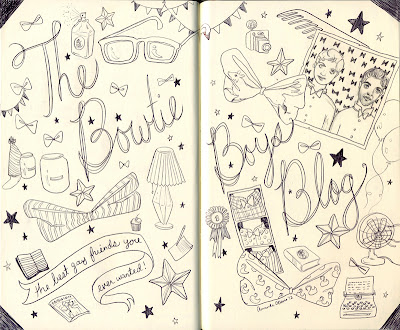 The
Bowtie
Boys
Blog
the best gay friends you
ever wanted!